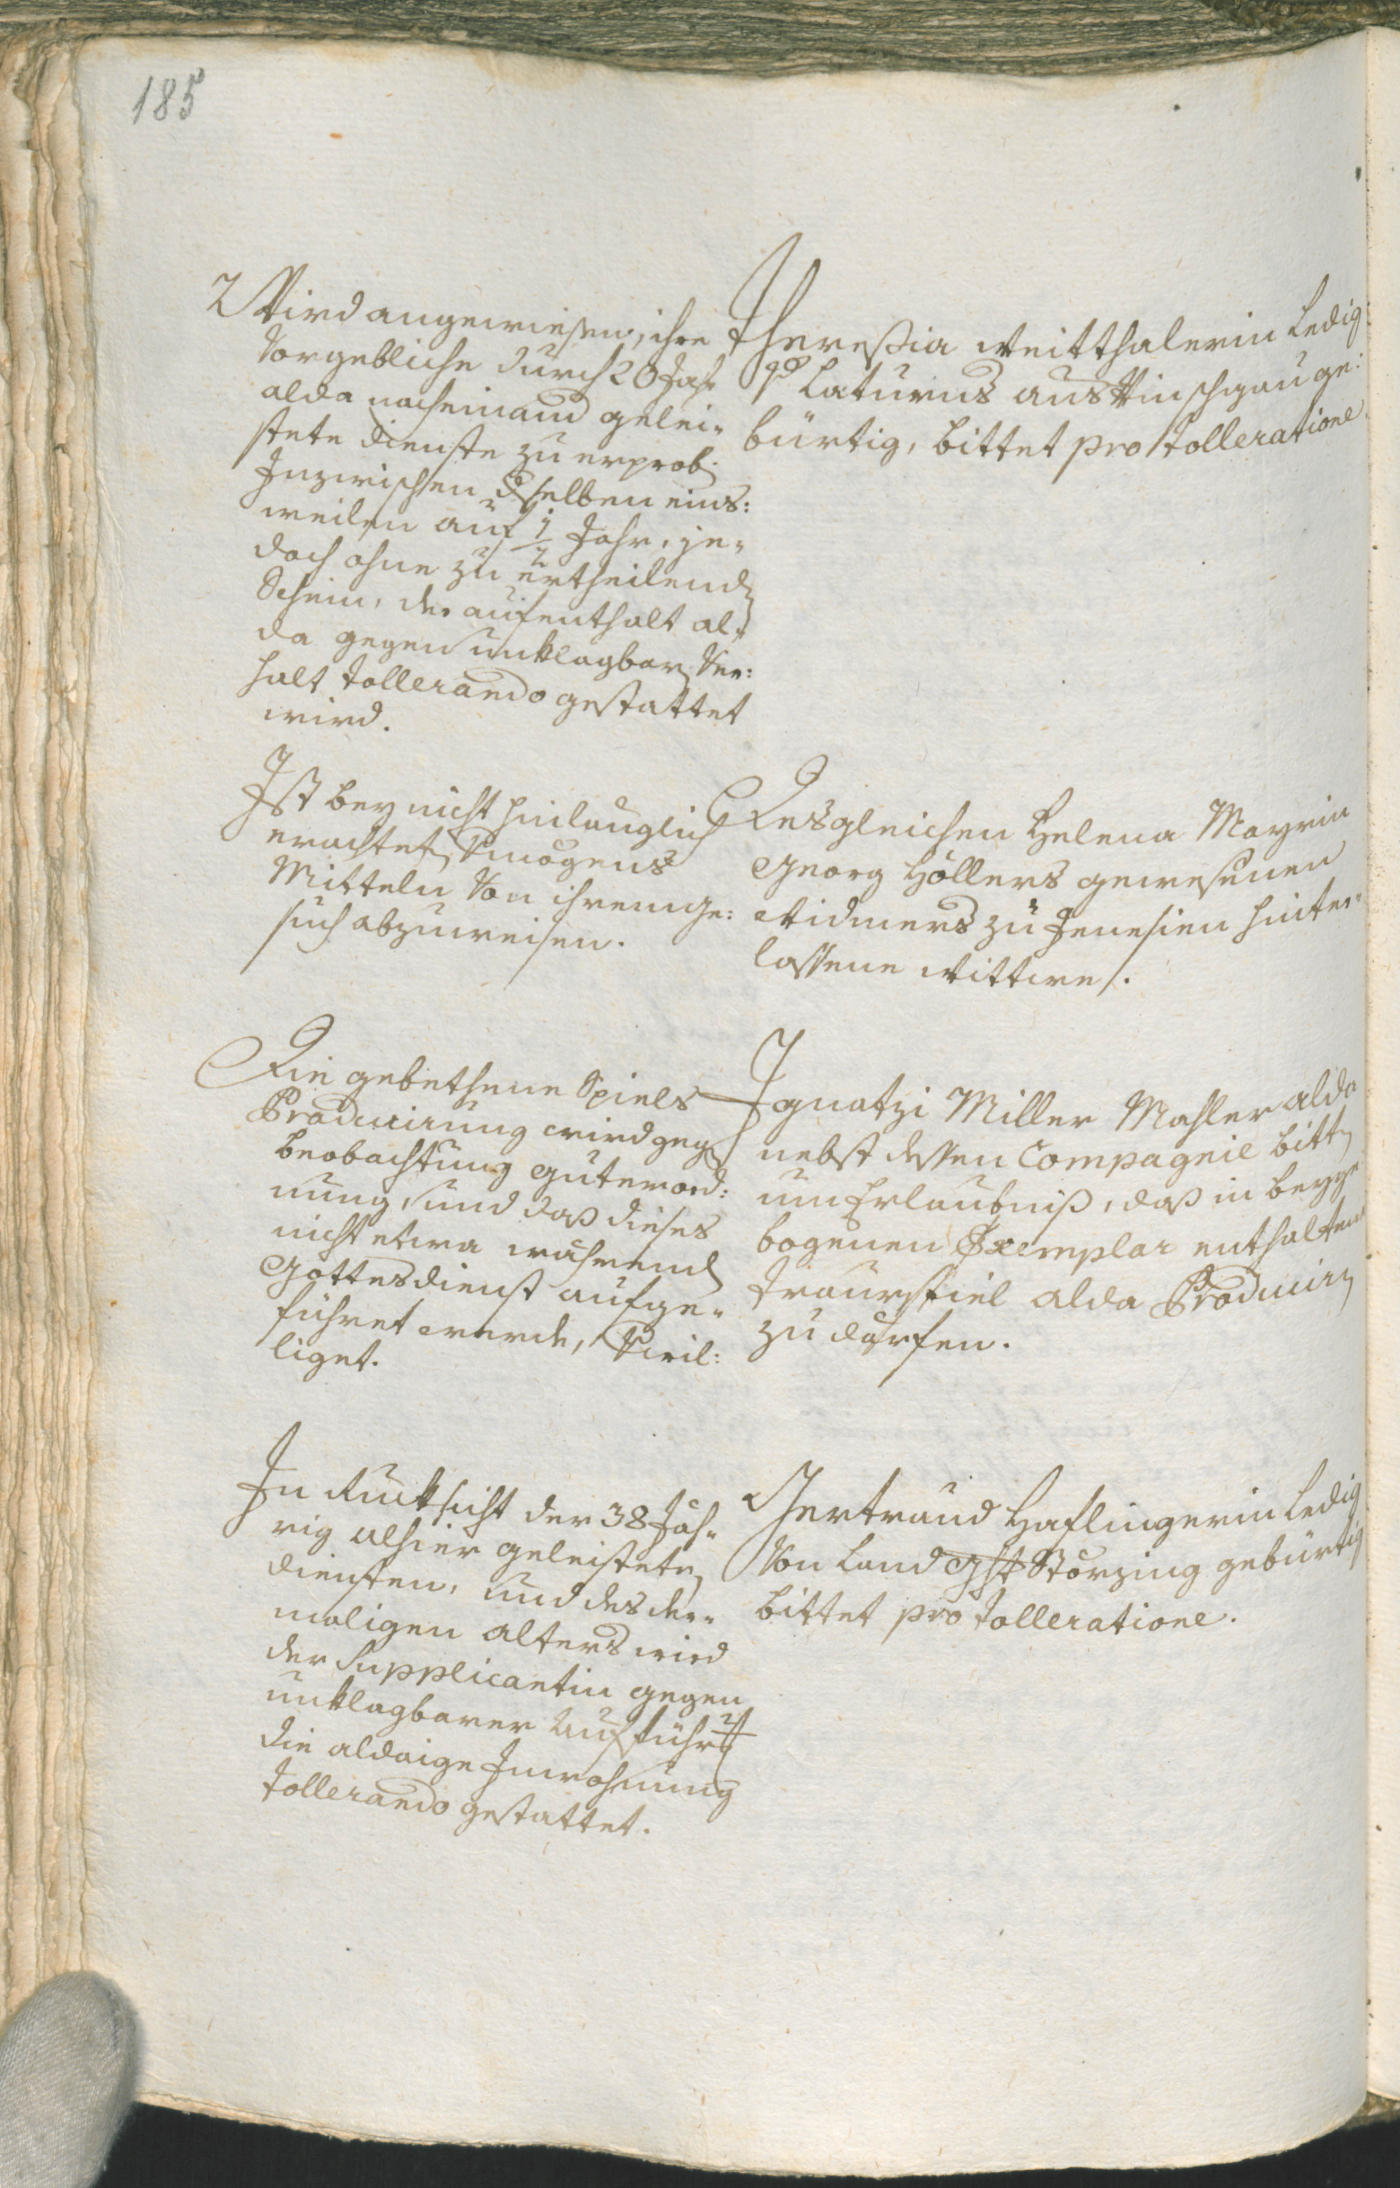 185
Wird angewiesen, ihre
vorgebliche durch 20 Jahr
alda nacheinand gelei-
stete dienste zu erprob.
Inzwischen dselben eins:
weilen auf 1/2 Jahr, je-
doch ohne zu ertheilend
Schein, der aufenthalt al-
da gegen unklagbar Ver:
halt tollerando gestattet
wird.
Theresia Weitthalerin ledig
Laturns aus Vinschgau ge:
bürtig, bittet pro tolleratione
Ist bey nicht hinlänglich
erachtet Vmögens
Mitteln von ihrem ge:
such abzuweisen.
Desgleichen Helena Mayrin
Georg Höllers gewesenen
Widmers zu Jenesien hinter-
lassene Wittwe.
Die gebethene Spiels
Producirung wird geg
beobachtung guter ord:
nung, und daß dieses
nicht etwa während
Gottesdienst aufge-
führet werde, Vwil:
liget.
Ignatzi Miller Mahler alda
nebst dessen Compagnie bitt
um Erlaubniß, daß in beyge
bogenen Exemplar enthaltene
traurspiel alda Producirn
zu därfen.
In Rücksicht der 38 Jäh-
rig alhier geleisteten
diensten, und des der-
maligen alters wird
der Supplicantin gegen
unklagbarer Aufführung
die aldaige Inwohnung
tollerando gestattet.
Gertraud Haflingerin ledig
von Landght Störzing gebürtig
bittet pro tolleratione.